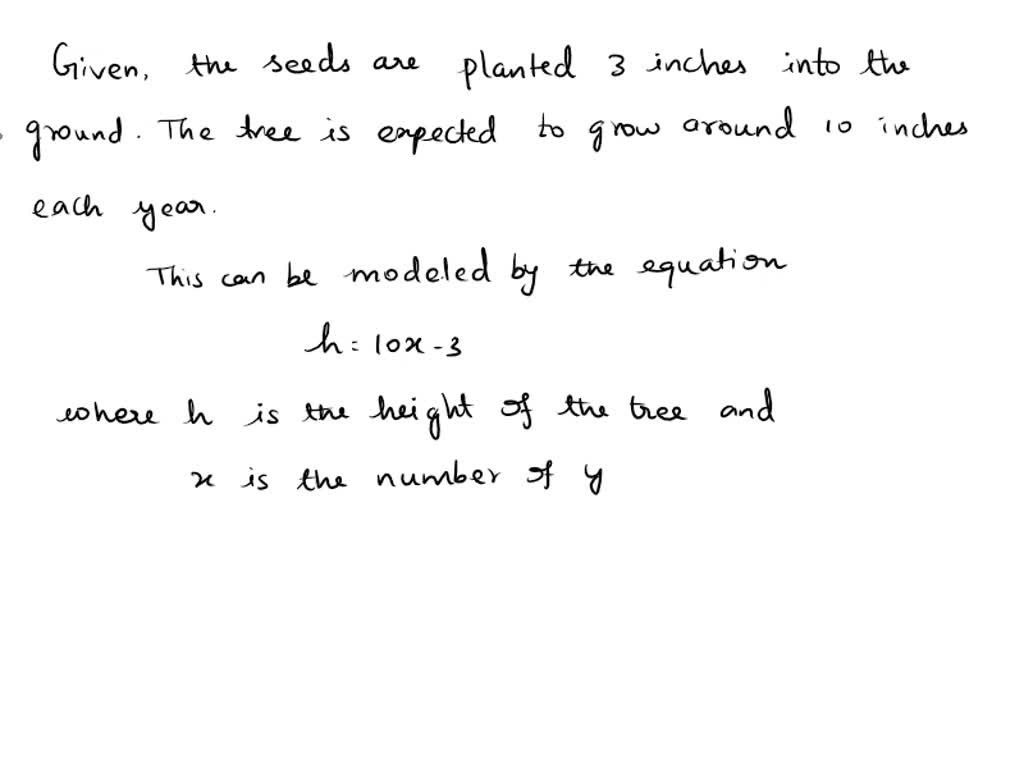 Given, the seeds are planted 3 inches into the
ground. The tree is expected to grow around 10 inches
each year.
This can be modeled by the equation
h = 10x - 3
where h is the height of the tree and
x is the number of y